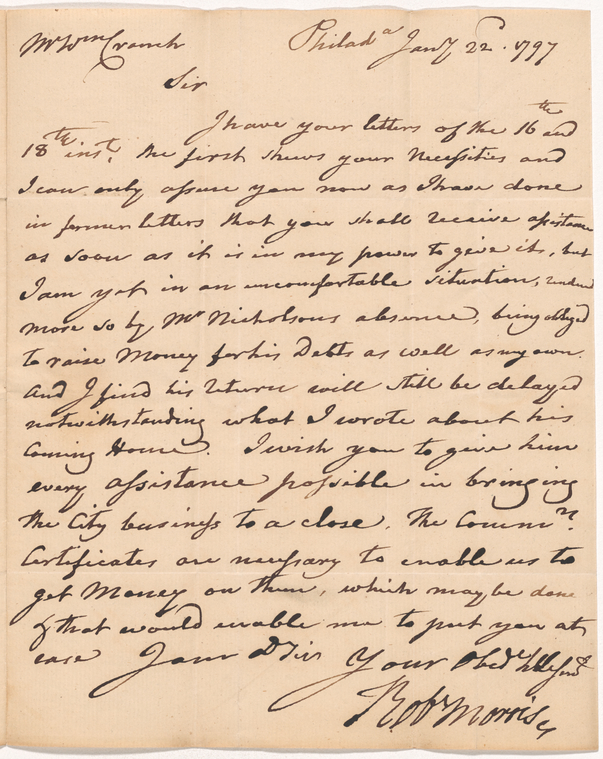 Mr Wm Cranch
Philada Jany 22d. 1797
Sir
I have your letters of the 16th and
18th inst. the first shews your Necessities and
I can only assure you now as I have done
in former letters that you shall receive assistance
as soon as it is in my power to give it, but
I am yet in an uncomfortable situation, rendered
more so by Mr Nicholsons absence, being obliged
to raise Money for his Debts as well as my own.
And I find his return will still be delayed
notwithstanding what I wrote about his
Coming Home. I wish you to give him
every assistance possible in bringing
the City business to a close, the Commrs.
Certificates are necessary to enable us to
get Money on them, which may be done
& that would enable me to put you at
ease I am D Sir Your Obedt Hble Servt
Robt Morris